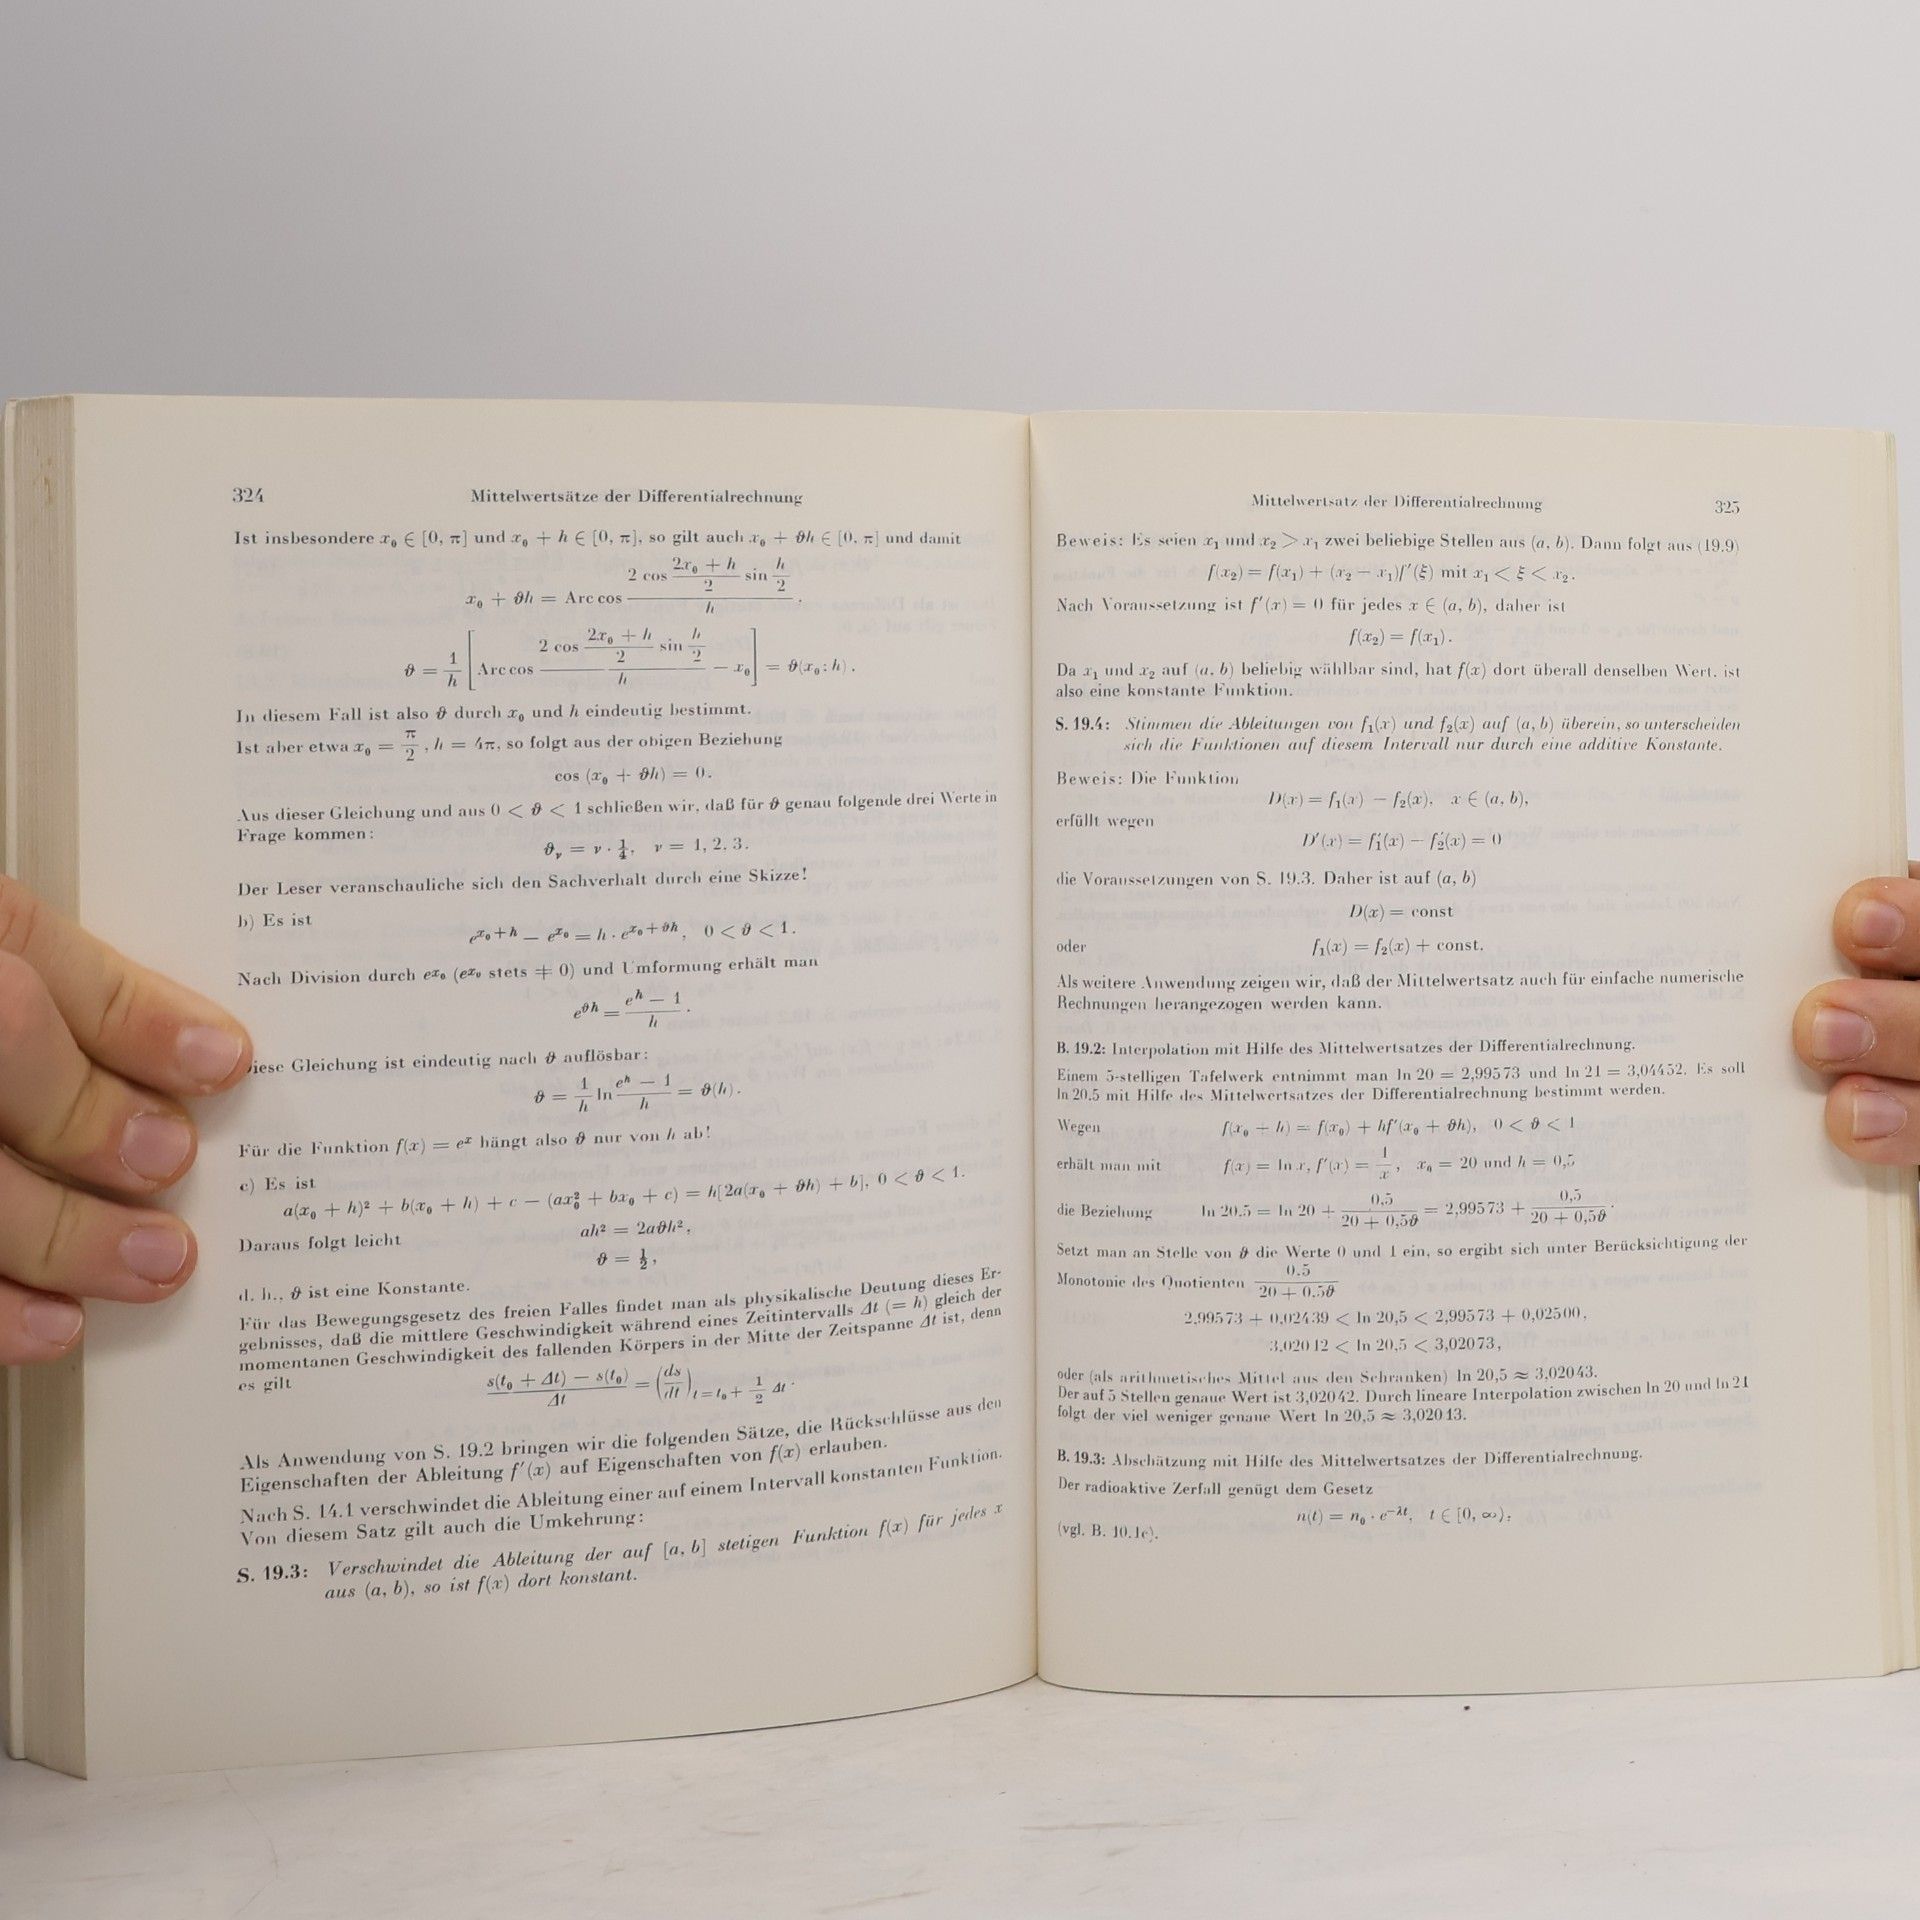 324 Mittelwertsätze der Differentialrechnung
Ist insbesondere x₀ ∈ [0, π] und x₀ + h ∈ [0, π], so gilt auch x₀ + ϑh ∈ [0, π] und damit
x₀ + ϑh = Arc cos (2 cos (2x₀ + h)/2 sin h/2)/h .
ϑ = 1/h [Arc cos (2 cos (2x₀ + h)/2 sin h/2)/h − x₀] = ϑ(x₀; h) .
In diesem Fall ist also ϑ durch x₀ und h eindeutig bestimmt.
Ist aber etwa x₀ = π/2 , h = 4π, so folgt aus der obigen Beziehung
cos (x₀ + ϑh) = 0.
Aus dieser Gleichung und aus 0 < ϑ < 1 schließen wir, daß für ϑ genau folgende drei Werte in
Frage kommen:
ϑᵥ = ν · 1/4, ν = 1, 2, 3.
Der Leser veranschauliche sich den Sachverhalt durch eine Skizze!
b) Es ist
e^(x₀+h) − e^(x₀) = h · e^(x₀+ϑh), 0 < ϑ < 1.
Nach Division durch e^(x₀) (e^(x₀) stets ≠ 0) und Umformung erhält man
e^(ϑh) = (e^h − 1)/h .
Diese Gleichung ist eindeutig nach ϑ auflösbar:
ϑ = 1/h ln (e^h − 1)/h = ϑ(h).
Für die Funktion f(x) = e^x hängt also ϑ nur von h ab!
c) Es ist
a(x₀ + h)² + b(x₀ + h) + c − (ax₀² + bx₀ + c) = h[2a(x₀ + ϑh) + b], 0 < ϑ < 1.
Daraus folgt leicht ah² = 2aϑh²,
ϑ = 1/2,
d. h., ϑ ist eine Konstante.
Für das Bewegungsgesetz des freien Falles findet man als physikalische Deutung dieses Er-
gebnisses, daß die mittlere Geschwindigkeit während eines Zeitintervalls Δt (= h) gleich der
momentanen Geschwindigkeit des fallenden Körpers in der Mitte der Zeitspanne Δt ist, denn
es gilt (s(t₀ + Δt) − s(t₀))/Δt = (ds/dt) t = t₀ + 1/2 Δt .
Als Anwendung von S. 19.2 bringen wir die folgenden Sätze, die Rückschlüsse aus den
Eigenschaften der Ableitung f′(x) auf Eigenschaften von f(x) erlauben.
Nach S. 14.1 verschwindet die Ableitung einer auf einem Intervall konstanten Funktion.
Von diesem Satz gilt auch die Umkehrung:
S. 19.3: Verschwindet die Ableitung der auf [a, b] stetigen Funktion f(x) für jedes x
aus (a, b), so ist f(x) dort konstant.
Mittelwertsatz der Differentialrechnung 325
Beweis: Es seien x₁ und x₂ > x₁ zwei beliebige Stellen aus (a, b). Dann folgt aus (19.9)
f(x₂) = f(x₁) + (x₂ − x₁)f′(ξ) mit x₁ < ξ < x₂.
Nach Voraussetzung ist f′(x) = 0 für jedes x ∈ (a, b), daher ist
f(x₂) = f(x₁).
Da x₁ und x₂ auf (a, b) beliebig wählbar sind, hat f(x) dort überall denselben Wert, ist
also eine konstante Funktion.
S. 19.4: Stimmen die Ableitungen von f₁(x) und f₂(x) auf (a, b) überein, so unterscheiden
sich die Funktionen auf diesem Intervall nur durch eine additive Konstante.
Beweis: Die Funktion
D(x) = f₁(x) − f₂(x), x ∈ (a, b),
erfüllt wegen
D′(x) = f₁′(x) − f₂′(x) = 0
die Voraussetzungen von S. 19.3. Daher ist auf (a, b)
D(x) = const
oder f₁(x) = f₂(x) + const.
Als weitere Anwendung zeigen wir, daß der Mittelwertsatz auch für einfache numerische
Rechnungen herangezogen werden kann.
B. 19.2: Interpolation mit Hilfe des Mittelwertsatzes der Differentialrechnung.
Einem 5-stelligen Tafelwerk entnimmt man ln 20 = 2,99573 und ln 21 = 3,04452. Es soll
ln 20,5 mit Hilfe des Mittelwertsatzes der Differentialrechnung bestimmt werden.
Wegen f(x₀ + h) = f(x₀) + hf′(x₀ + ϑh), 0 < ϑ < 1
erhält man mit f(x) = ln x, f′(x) = 1/x, x₀ = 20 und h = 0,5
die Beziehung ln 20,5 = ln 20 + 0,5/(20 + 0,5ϑ) = 2,99573 + 0,5/(20 + 0,5ϑ).
Setzt man an Stelle von ϑ die Werte 0 und 1 ein, so ergibt sich unter Berücksichtigung der
Monotonie des Quotienten 0,5/(20 + 0,5ϑ)
2,99573 + 0,02439 < ln 20,5 < 2,99573 + 0,02500,
3,02012 < ln 20,5 < 3,02073,
oder (als arithmetisches Mittel aus den Schranken) ln 20,5 ≈ 3,02043.
Der auf 5 Stellen genaue Wert ist 3,02042. Durch lineare Interpolation zwischen ln 20 und ln 21
folgt der viel weniger genaue Wert ln 20,5 ≈ 3,02013.
B. 19.3: Abschätzung mit Hilfe des Mittelwertsatzes der Differentialrechnung.
Der radioaktive Zerfall genügt dem Gesetz
n(t) = n₀ · e^(−λt), t ∈ [0, ∞),
(vgl. B. 10.1c).